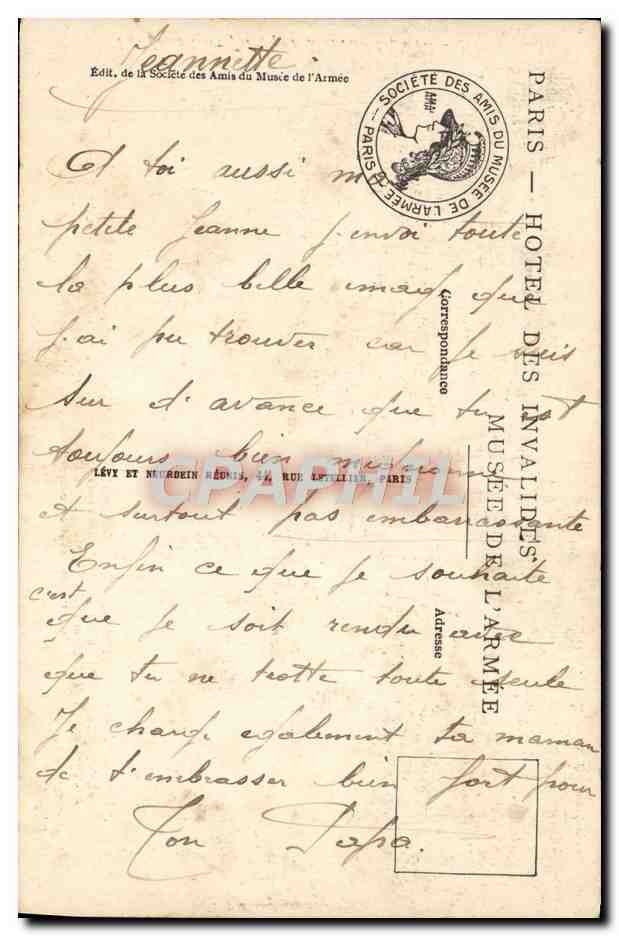 Jeannette.
Edit. de la Société des Amis du Musée de l'Armée
SOCIÉTÉ DES AMIS DU MUSÉE DE L'ARMÉE — PARIS —
PARIS — HOTEL DES INVALIDES.
MUSÉE DE L'ARMÉE
Correspondance
Adresse
LÉVY ET NEURDEIN RÉUNIS, 44, RUE LETELLIER, PARIS
CPAPHIL
Et toi aussi ma
petite Jeanne j'envoi toute
la plus belle imag que
j'ai pu trouver car je suis
sur d'avance que tu est
toujours bien mignonne
et surtout pas embarrassante
Enfin ce que je souhaite
c'est
que je soit rendu avec
que tu ne trotte toute seule
Je charge egalement ta maman
de t'embrasser bien fort pour
Ton Papa.